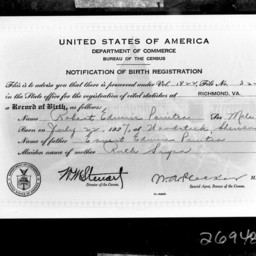 UNITED STATES OF AMERICA
DEPARTMENT OF COMMERCE
BUREAU OF THE CENSUS
NOTIFICATION OF BIRTH REGISTRATION
This is to advise you that there is preserved under Vol. File No.
in the State office for the registration of vital statistics at RICHMOND, VA.
a Record of Birth, as follows:
Name Robert Edwin Sex Male
Born on July 22, at Woodstock
Name of father Ernest Edwin
Maiden name of mother Ruth
W.M. Steuart
Director of the Census.
Special Agent, Bureau of the Census.
26948